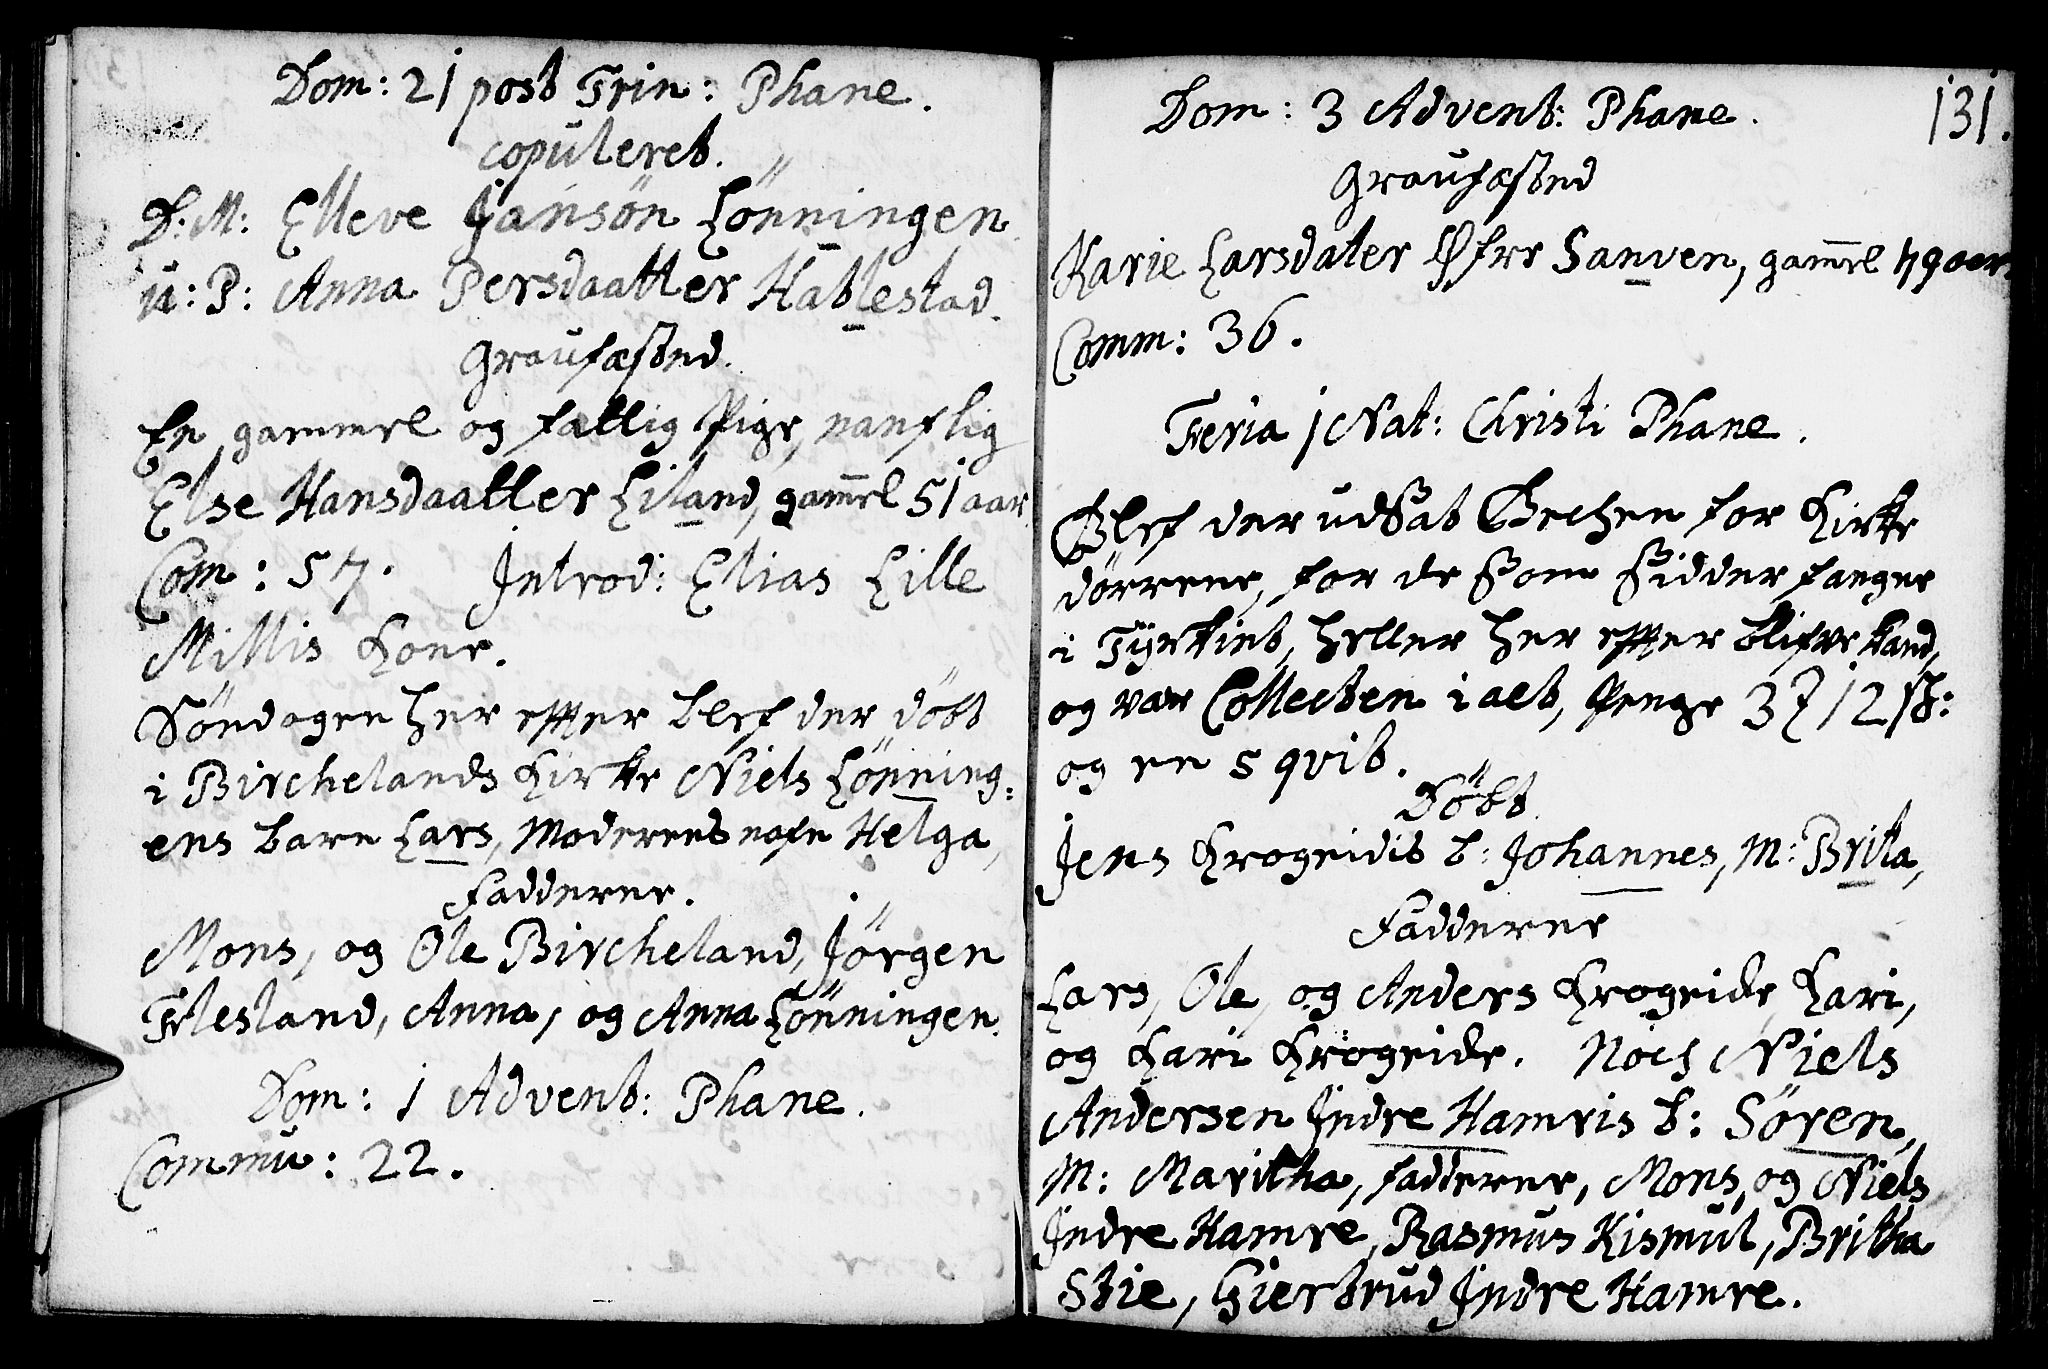 Dom: 21 post Trin: Phane.
copuleret.
D: M: Elleve Jansön Lönningen
u: P: Anna Persdaatter Hatlestad.
Graufæsted.
En gammel og fattig Pige, nanflig
Else Hansdaatter Liland, gam̅el 51 aar
Com: 57. Introd: Elias Lille
Millis Kone.
Söndagen her effter blef der döbt
i Birchelands Kirke Niels Lönning:
ens barn Lars, Moderens nafn Helga,
Fadderne.
Mons, og Ole Bircheland, Jörgen
Flesland, Anna, og Anna Lönningen.
Dom: 1 Advent: Phane.
Commu: 22.
131.
Dom: 3 Advent: Phane.
Graufæsted
Karie Larsdater Øfre Sanven, gam̅el 79 aar.
Comm: 36.
Feria 1 Nat: Christi Phane.
Blef der udsat Bechen for Kirke
dörrene, for de som sidder fangne
i Tyrkiet, heller her effter blifve kand,
og var Collecten i alt, Penge 3 12 sk:
og en 5 qvit.
Döbt
Jens Krogeidit b: Johannes, M: Brita,
Fadderne
Lars, Ole, og Anders Krogeide, Kari,
og Kari Krogeide. Noch Niels
Andersen Jndre Hamris b: Sören,
M: Maritha, fadderne, Mons, og Niels
Jndre Hamre, Rasmus Kismul, Britha
Stie, Giertrud Jndre Hamre.